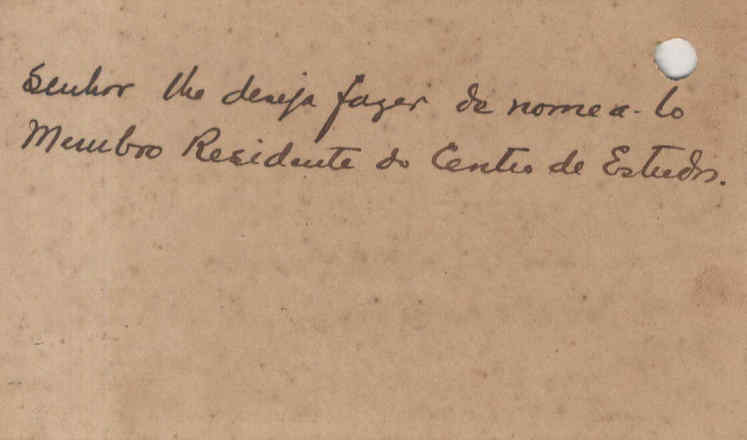 Senhor lhe deseja fazer de nomea-lo
Membro Residente do Centro de Estudos.